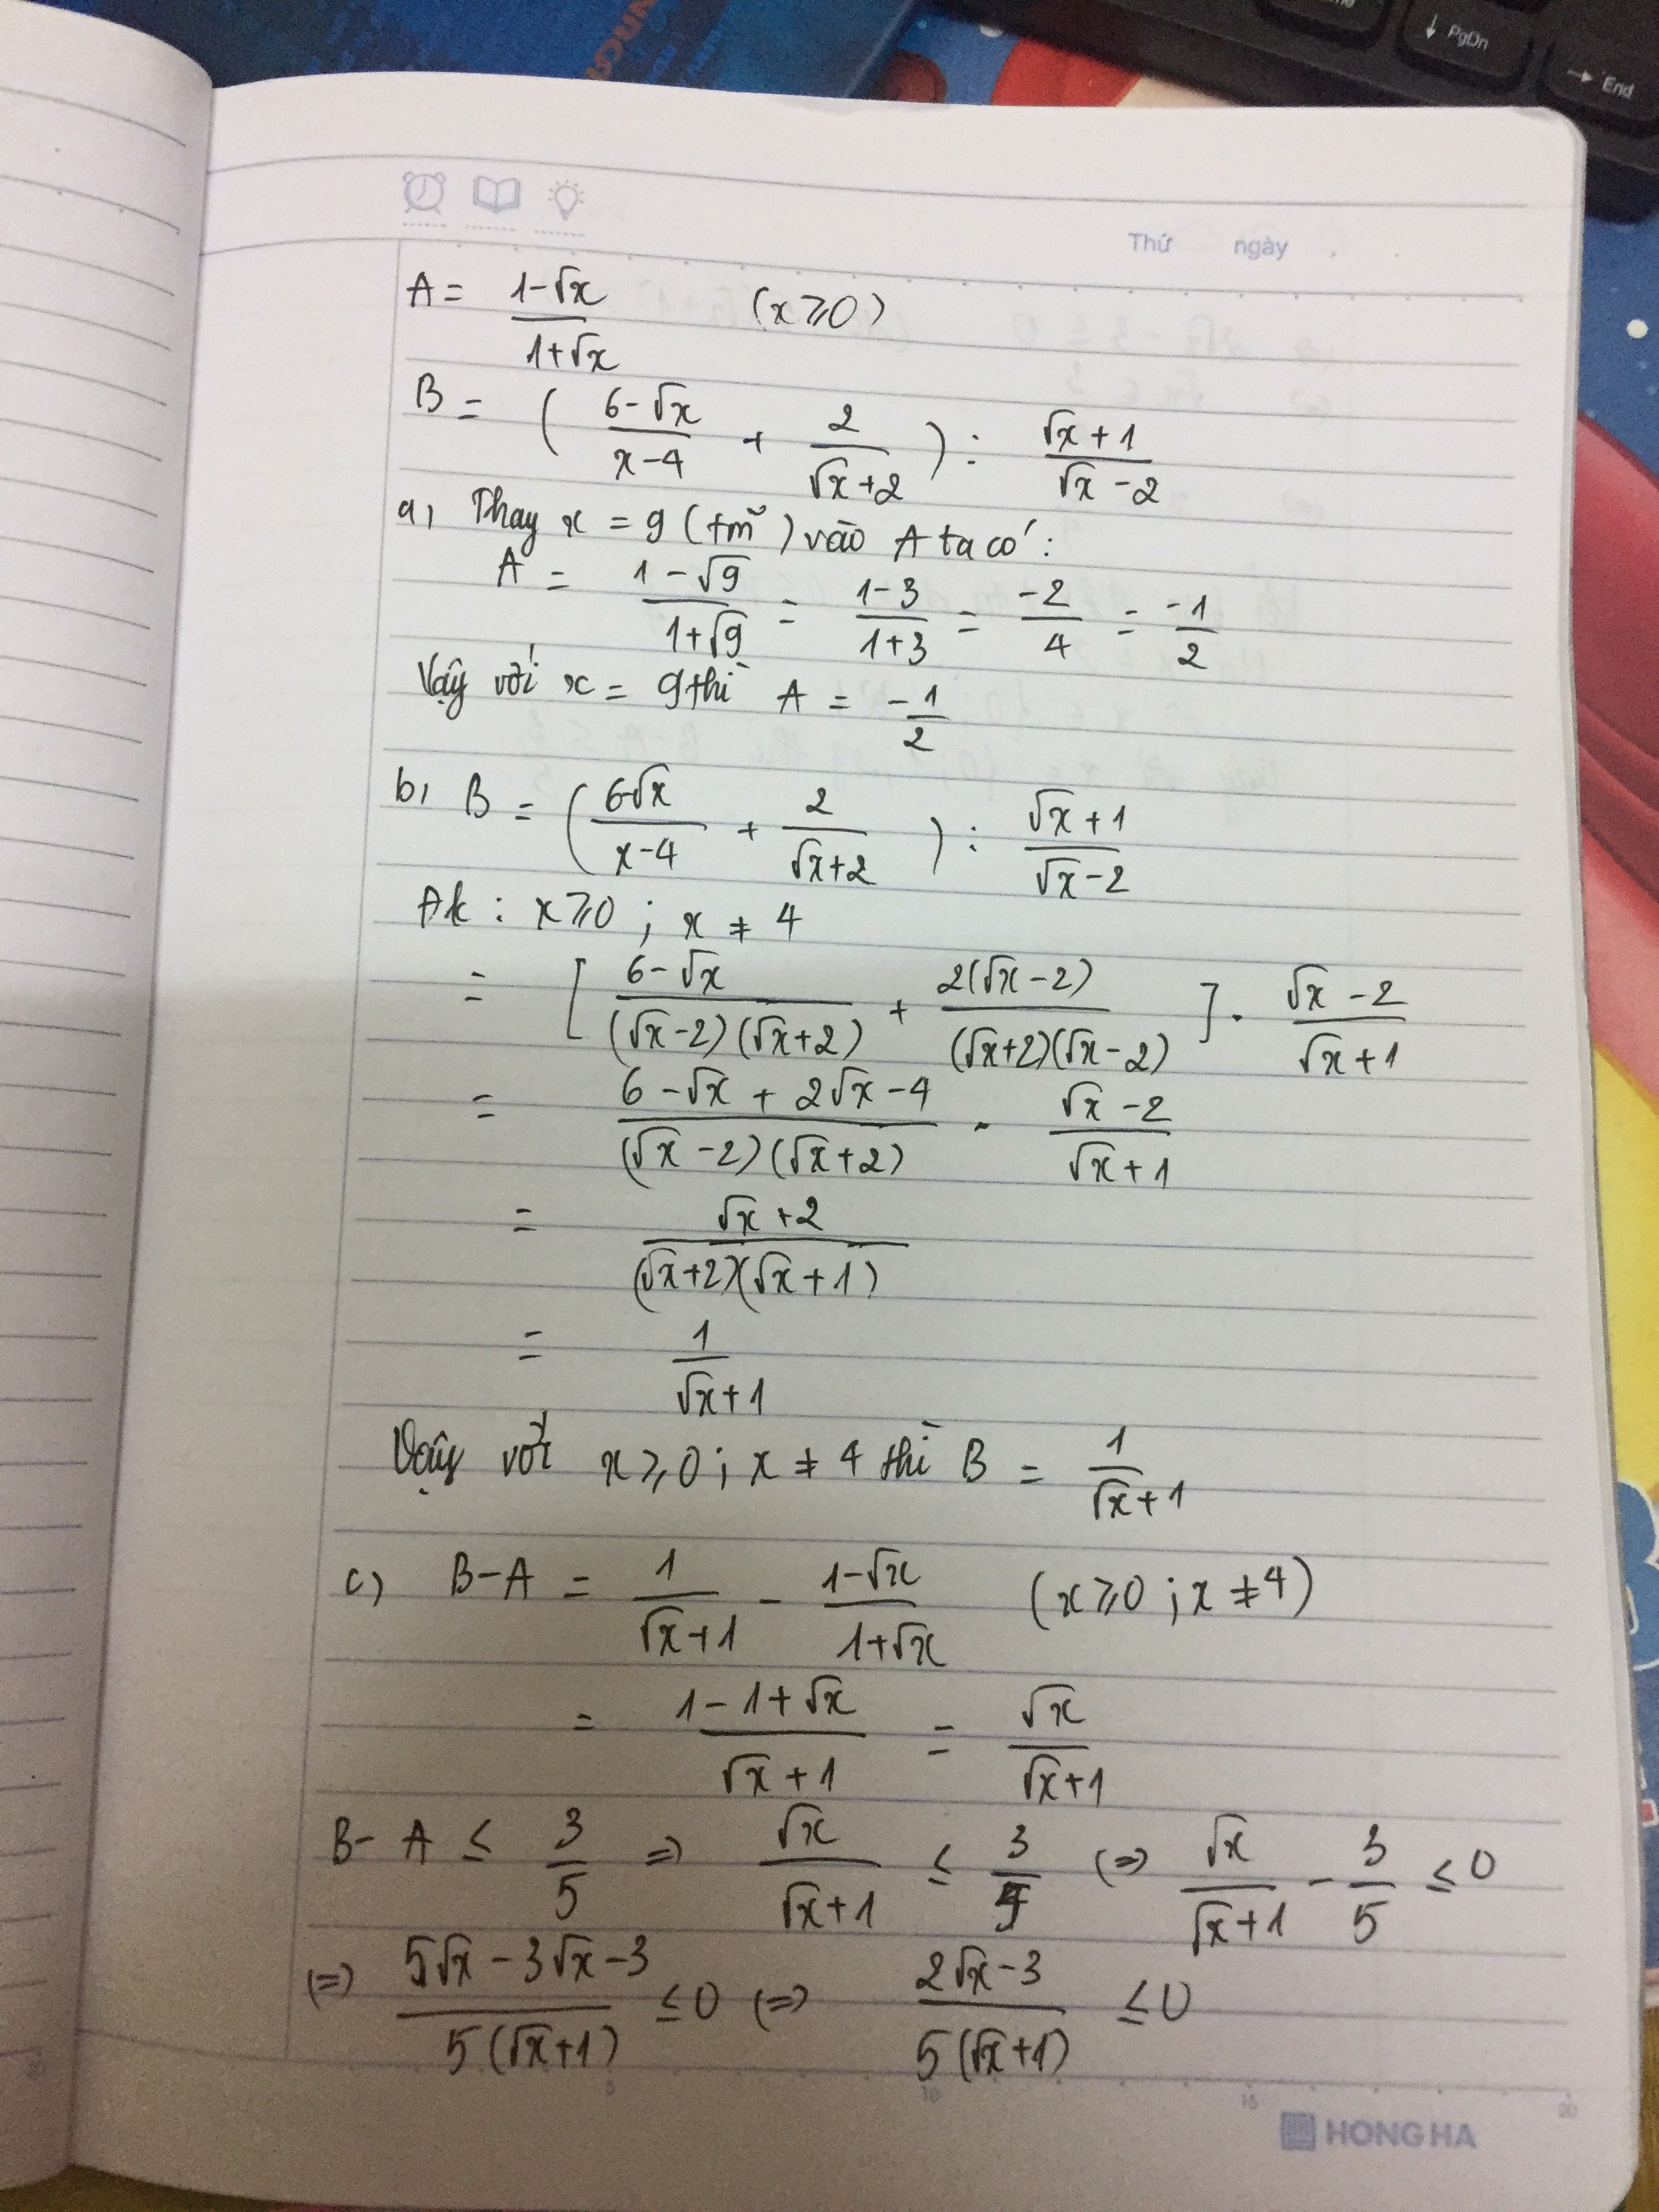 ↓ PgDn
→ End
Thứ ngày
A = (1-√x)/(1+√x) (x ≥ 0)
B = ( (6-√x)/(x-4) + 2/(√x+2) ) : (√x+1)/(√x-2)
a, Thay x = 9 (tm) vào A ta có :
A = (1-√9)/(1+√9) = (1-3)/(1+3) = -2/4 = -1/2
Vậy với x = 9 thì A = -1/2
b, B = ( (6-√x)/(x-4) + 2/(√x+2) ) : (√x+1)/(√x-2)
Đk : x ≥ 0 ; x ≠ 4
= [ (6-√x)/((√x-2)(√x+2)) + 2(√x-2)/((√x+2)(√x-2)) ] . (√x-2)/(√x+1)
= (6-√x+2√x-4)/((√x-2)(√x+2)) . (√x-2)/(√x+1)
= (√x+2)/((√x+2)(√x+1))
= 1/(√x+1)
Vậy với x ≥ 0 ; x ≠ 4 thì B = 1/(√x+1)
c, B-A = 1/(√x+1) - (1-√x)/(1+√x) (x ≥ 0 ; x ≠ 4)
= (1-1+√x)/(√x+1) = √x/(√x+1)
B-A ≤ 3/5 => √x/(√x+1) ≤ 3/5 (=) √x/(√x+1) - 3/5 ≤ 0
(=) (5√x-3√x-3)/(5(√x+1)) ≤ 0 (=) (2√x-3)/(5(√x+1)) ≤ 0
5 10 15 20
HONG HA